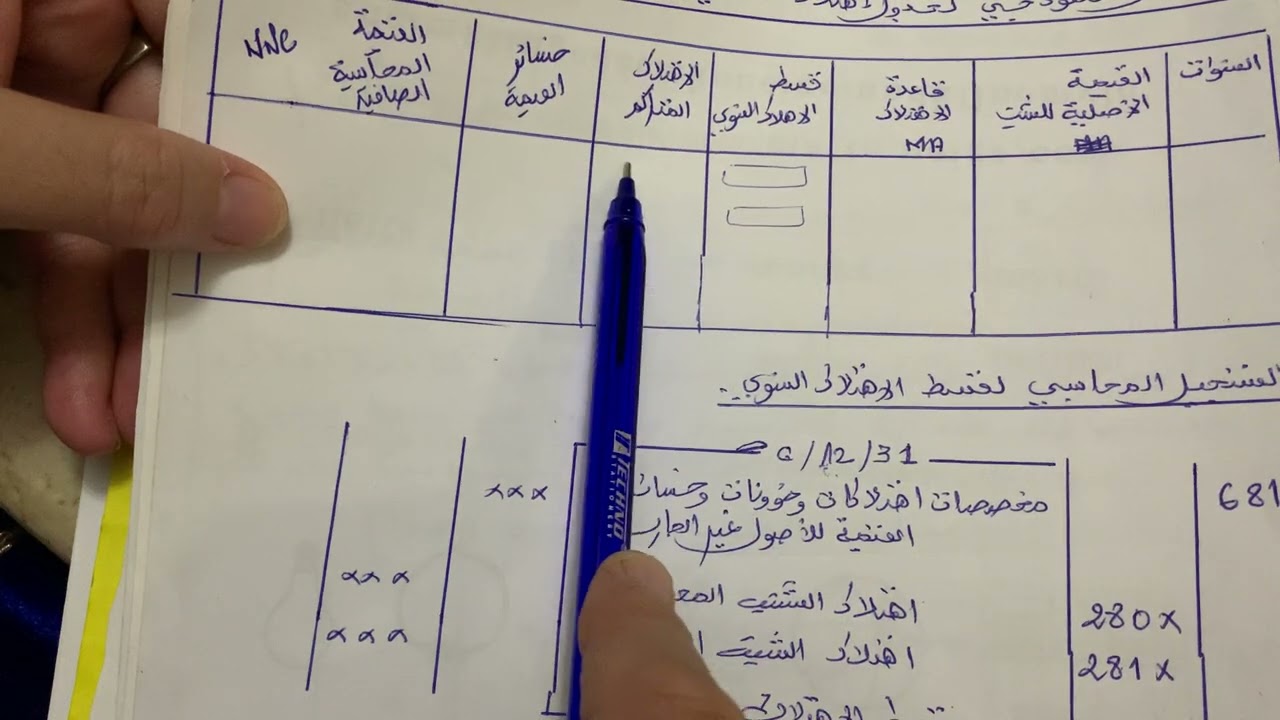 لجدول اهتلاك
السنوات
القيمة
الأصلية للتثبيت
قاعدة
الاهتلاك
MA
قسط
الاهتلاك السنوي
الاهتلاك
المتراكم
خسائر
القيمة
القيمة
المحاسبية
الصافية
VNC
التسجيل المحاسبي لقسط الاهتلاك السنوي
31/12/
681
مخصصات اهتلاكات ومؤونات وخسائر
xxx
القيمة للأصول غير الجار
280x
اهتلاك التثبيت المع
xxx
281x
اهتلاك التثبيت ا
xxx
TECHNO
STATIONERY